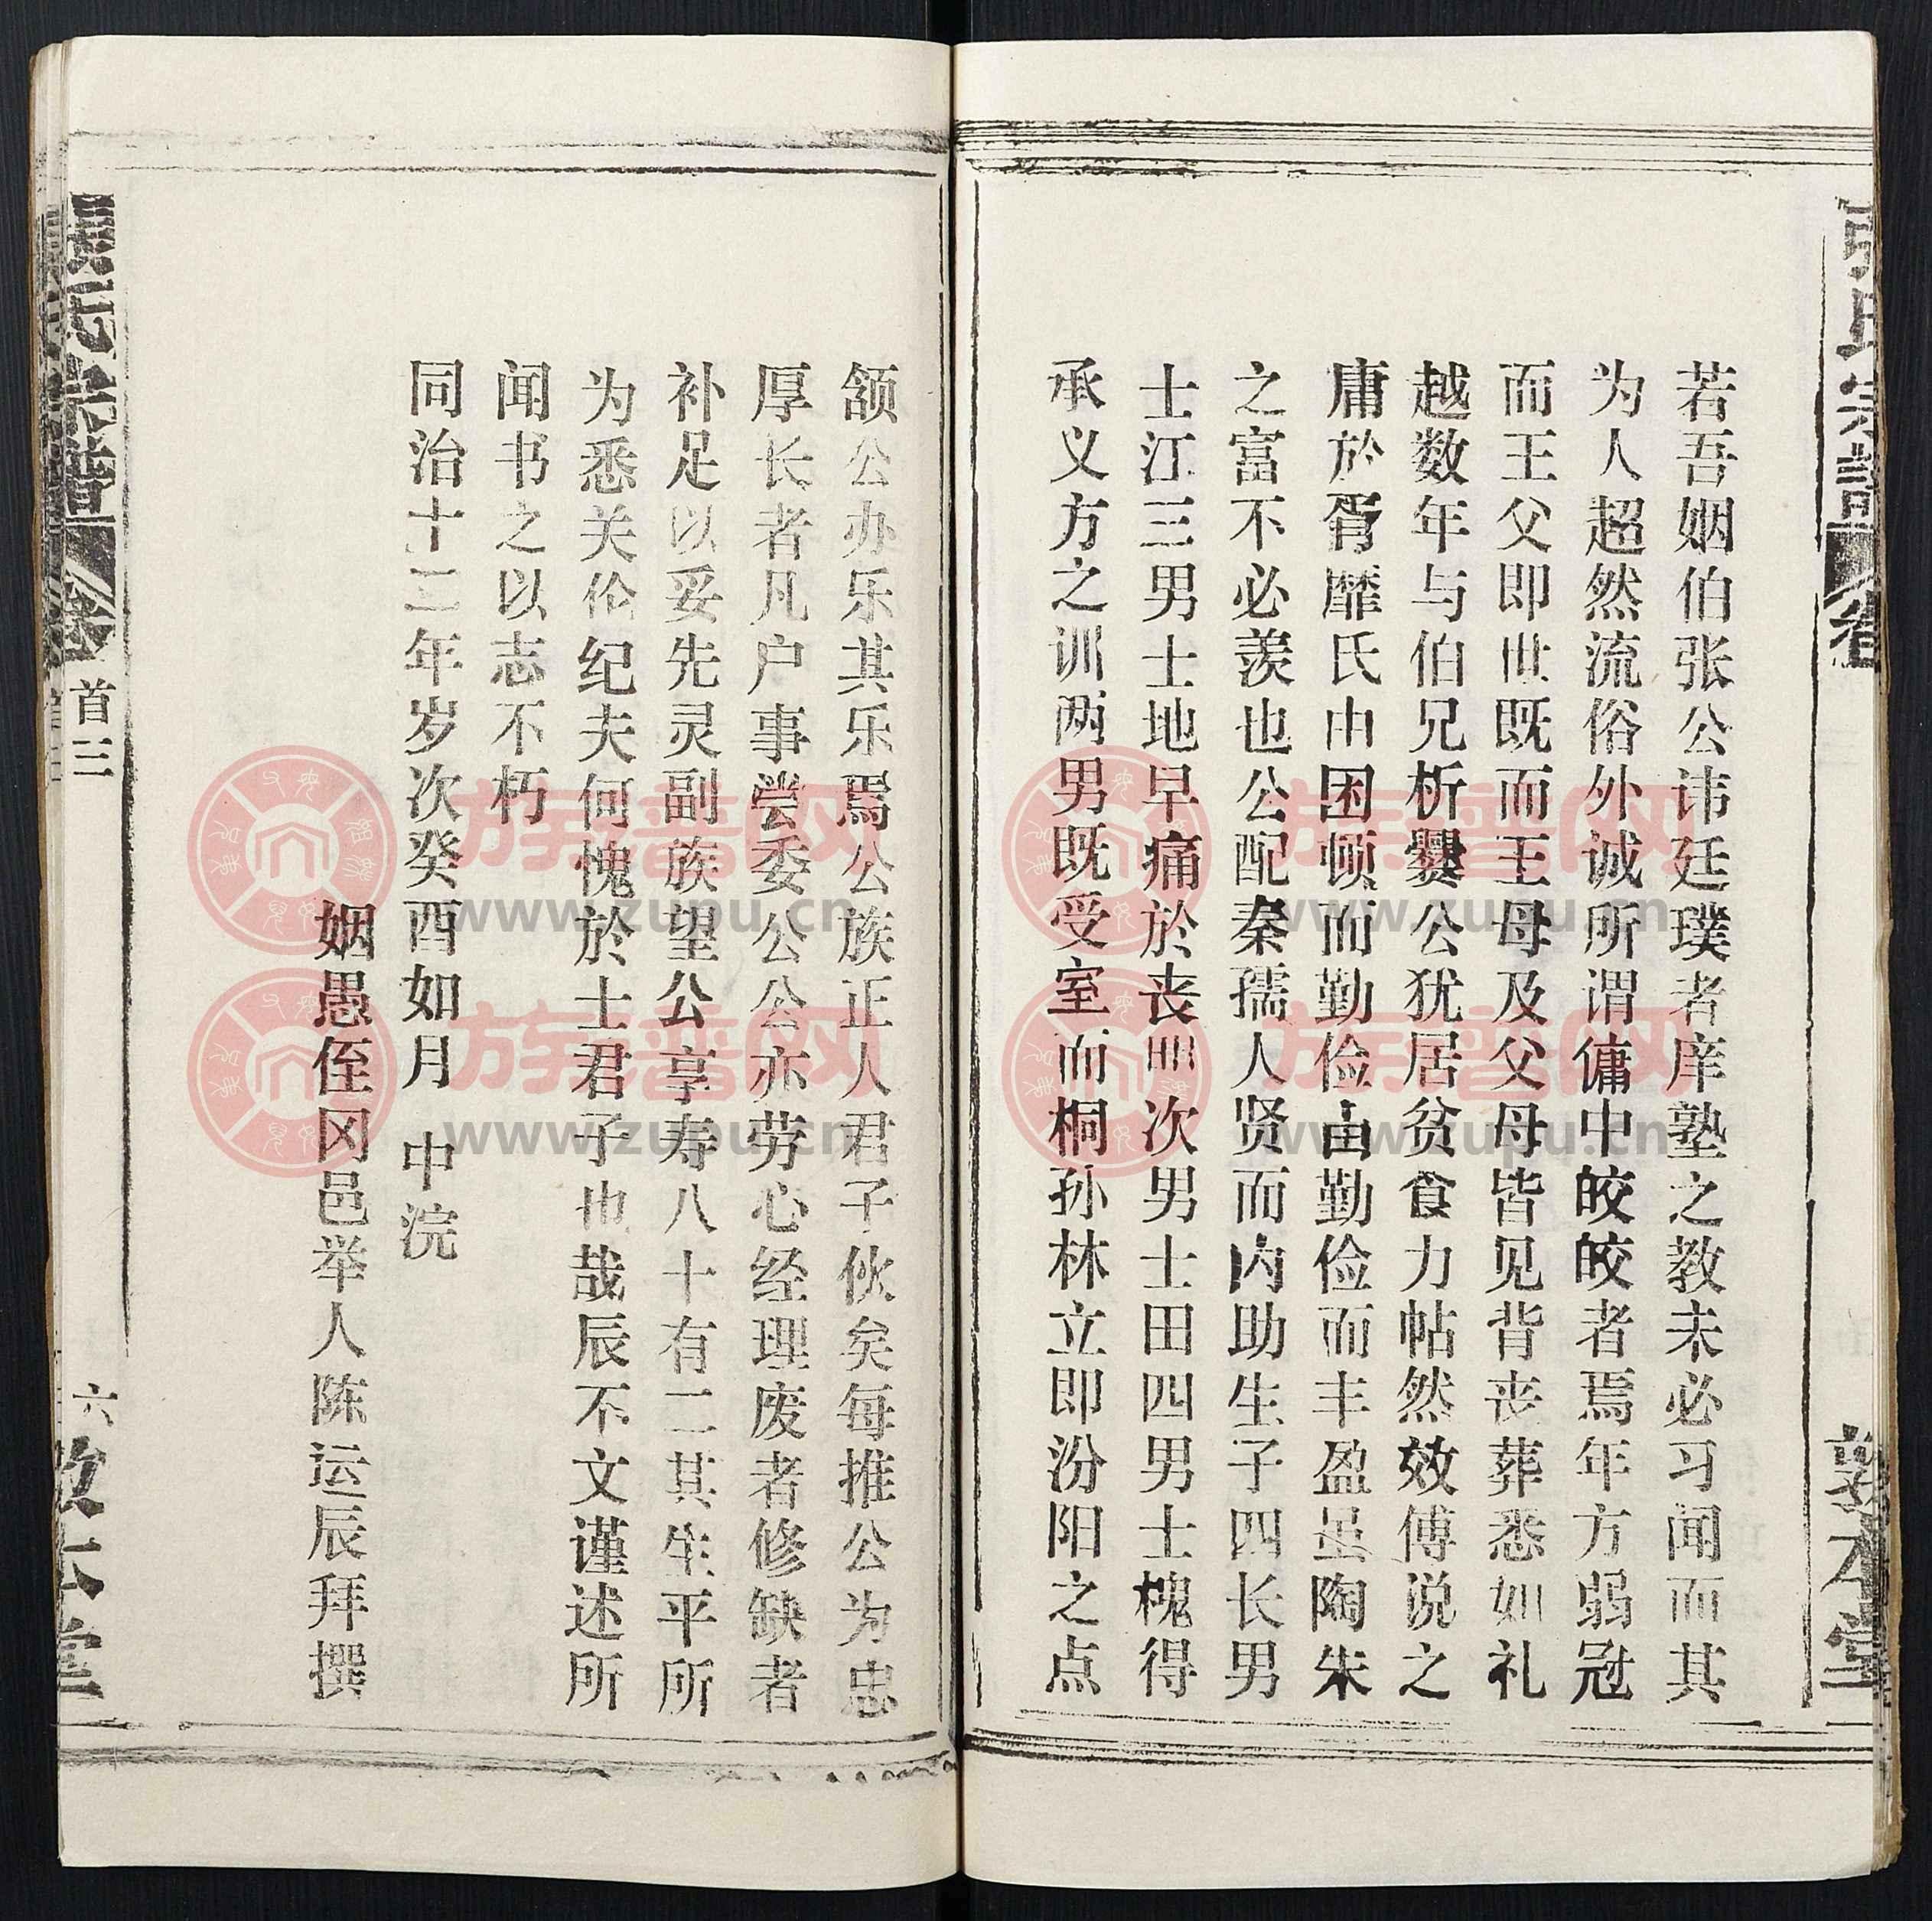 张氏宗譜
卷
敦本堂
若吾姻伯张公讳廷璞者庠塾之教未必习闻而其
为人超然流俗外诚所谓傭中皎皎者焉年方弱冠
而王父即世既而王母及父母皆见背丧葬悉如礼
越数年与伯兄析爨公犹居贫食力帖然效傅说之
庸於胥靡氏由困顿而勤俭由勤俭而丰盈虽陶朱
之富不必羡也公配秦孺人贤而内助生子四长男
士江三男士地早痛於丧明次男士田四男士槐得
承义方之训两男既受室而桐孙林立即汾阳之点
颔公办乐其乐焉公族正人君子伙矣每推公为忠
厚长者凡户事尝委公公亦劳心经理废者修缺者
补足以妥先灵副族望公享寿八十有二其生平所
为悉关伦纪夫何愧於士君子也哉辰不文谨述所
闻书之以志不朽
同治十二年岁次癸酉如月 中浣
姻愚侄冈邑举人陈运辰拜撰
张氏宗谱
卷
首三
六
敦本堂
族谱网
www.zupu.cn
族谱网
www.zupu.cn
族谱网
www.zupu.cn
族谱网
www.zupu.cn